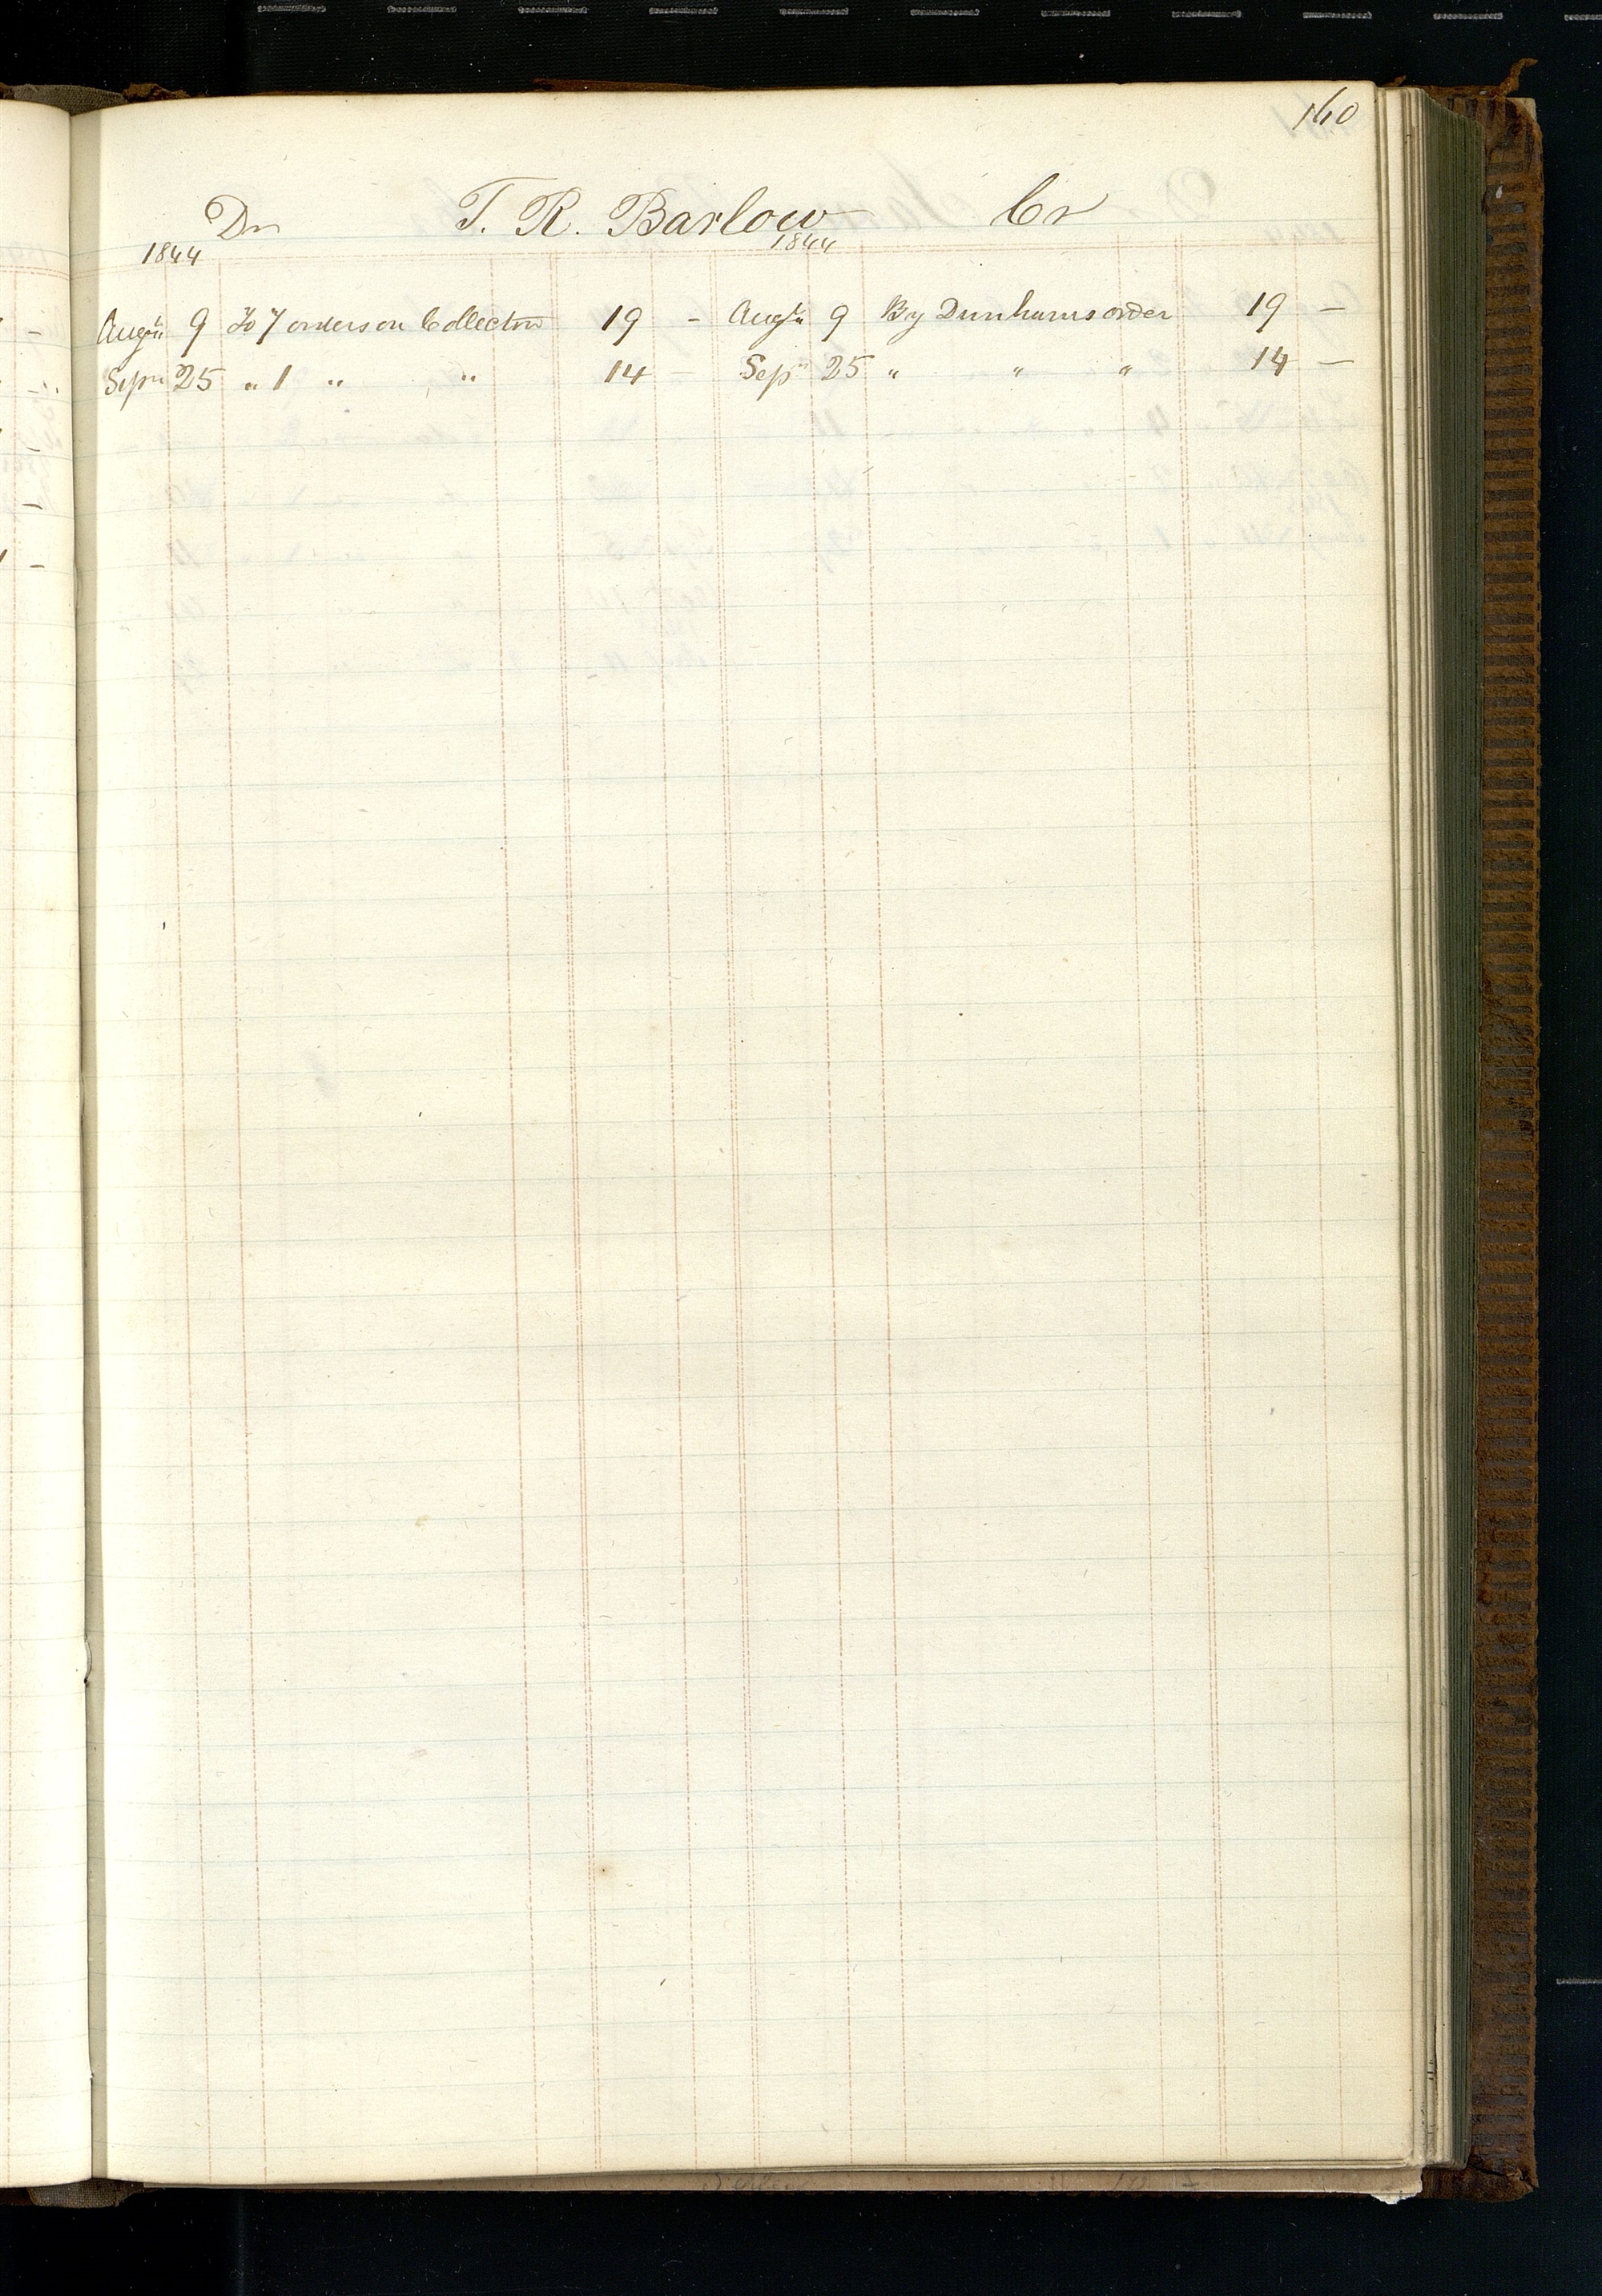 160
Dr T. R. Barlow Cr
1844 1844
Augst 9 To 7 orders on Collector 19 - Augst 9 By Dunhams order 19 -
Sepr 25 " 1 " " 14 - Sepr 25 " " " 14 -